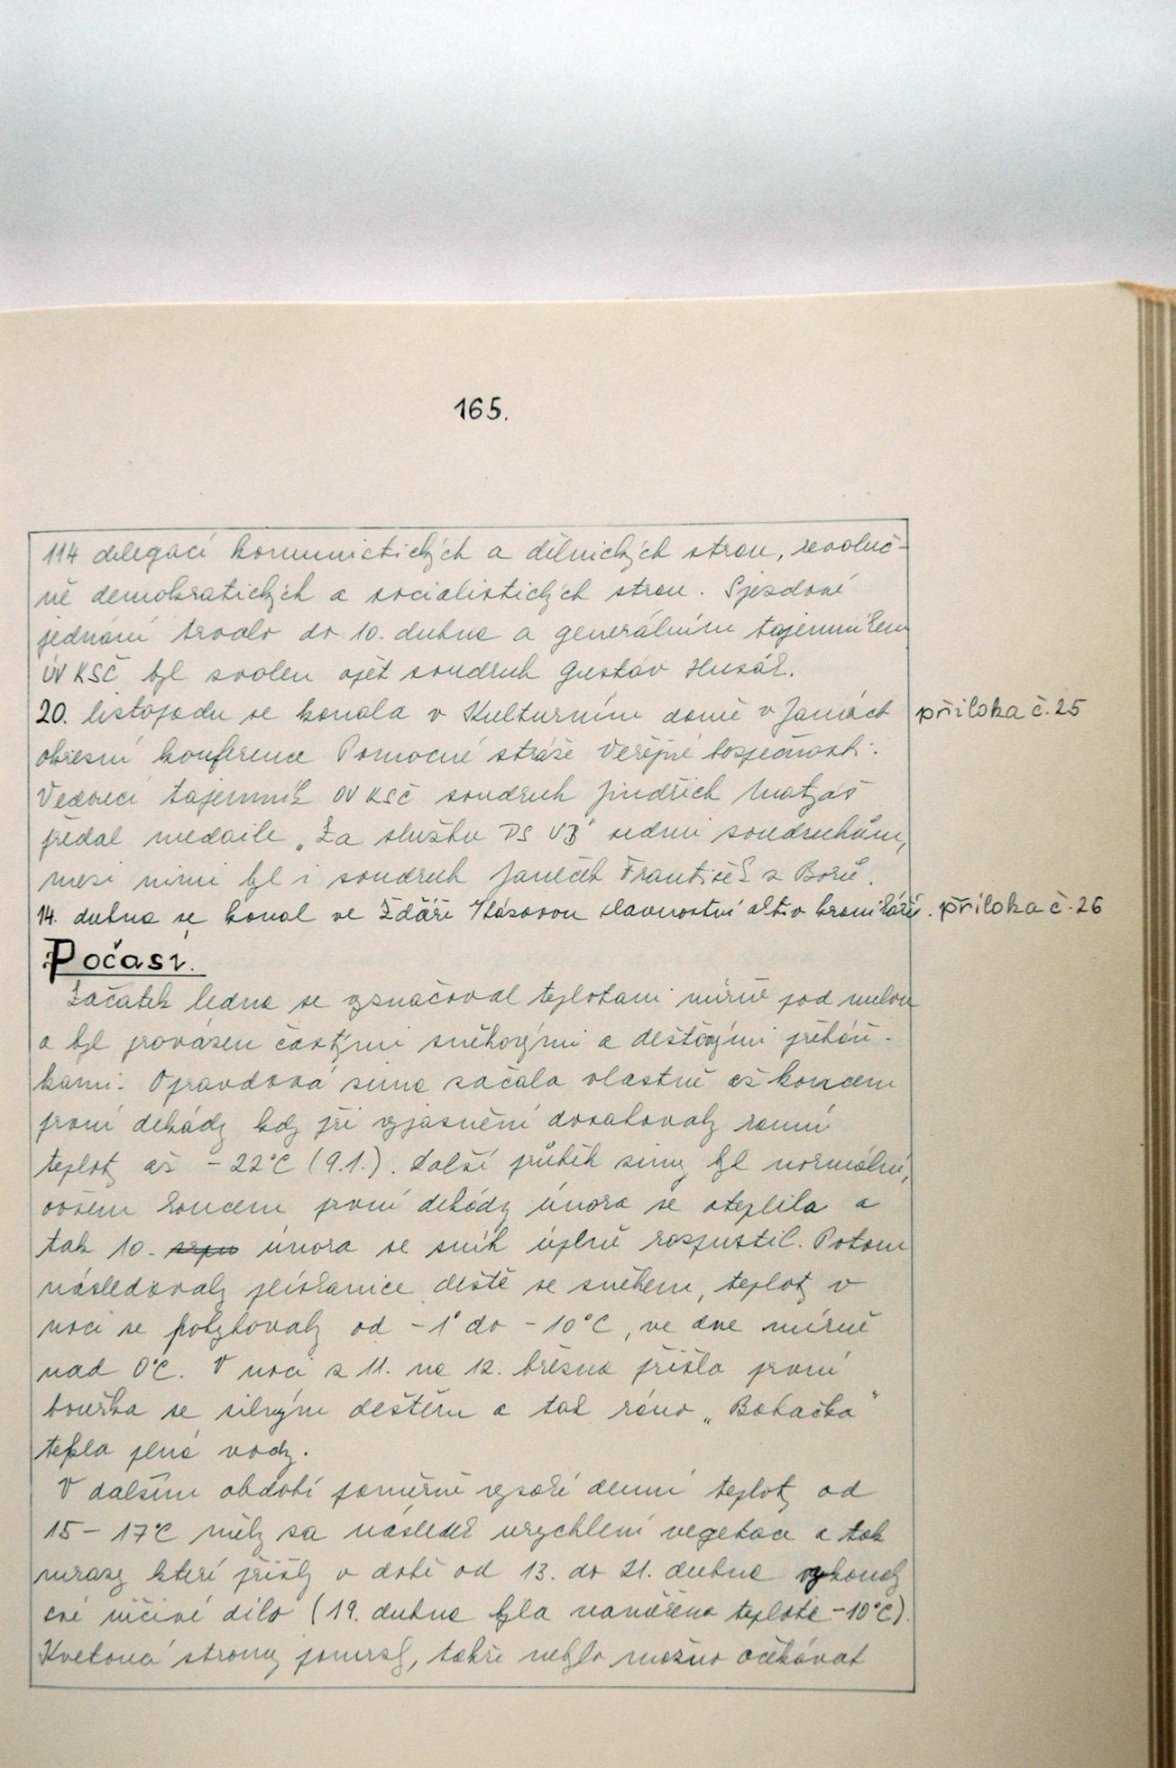 165.
114 delegací komunistických a dělnických stran, revoluč-
ně demokratických a socialistických stran. Sjezdové
jednání trvalo do 10. dubna a generálním tajemníkem
ÚV KSČ byl zvolen opět soudruh Gustáv Husák.
20. listopadu se konala v Kulturním domě v Jamách příloha č. 25
okresní konference Pomocné stráže Veřejné bezpečnosti.
Vedoucí tajemník OV KSČ soudruh Jindřich Matyáš
předal medaile „Za službu PS VB" sedmi soudruhům,
mezi nimi byl i soudruh Janeček František z Borů.
14. dubna se konal ve Žďáře Sázavou slavnostní aktiv kronikářů. příloha č. 26
Počasí.
Začátek ledna se vyznačoval teplotami mírně pod nulou
a byl provázen častými sněhovými a dešťovými přeháň-
kami. Opravdová zima začala vlastně až koncem
první dekády kdy při vyjasnění dosahovaly ranní
teploty až -22°C (9.1.). Další průběh zimy byl normální,
ovšem koncem první dekády února se oteplilo a
tak 10. srpn února se sníh úplně rozpustil. Potom
následovaly plískanice deště se sněhem, teploty v
noci se pohybovaly od -1° do -10°C, ve dne mírně
nad 0°C. V noci z 11. na 12. března přišla první
bouřka se silným deštěm a tak ráno „Babačka"
tekla plná vody.
V dalším období poměrně vysoké denní teploty od
15-17°C měly za následek urychlení vegetace a tak
mrazy které přišly v době od 13. do 21. dubna vykonaly
své ničivé dílo (19. dubna byla naměřena teplota -10°C).
Kvetoucí stromy pomrzly, takže nebylo možno očekávat